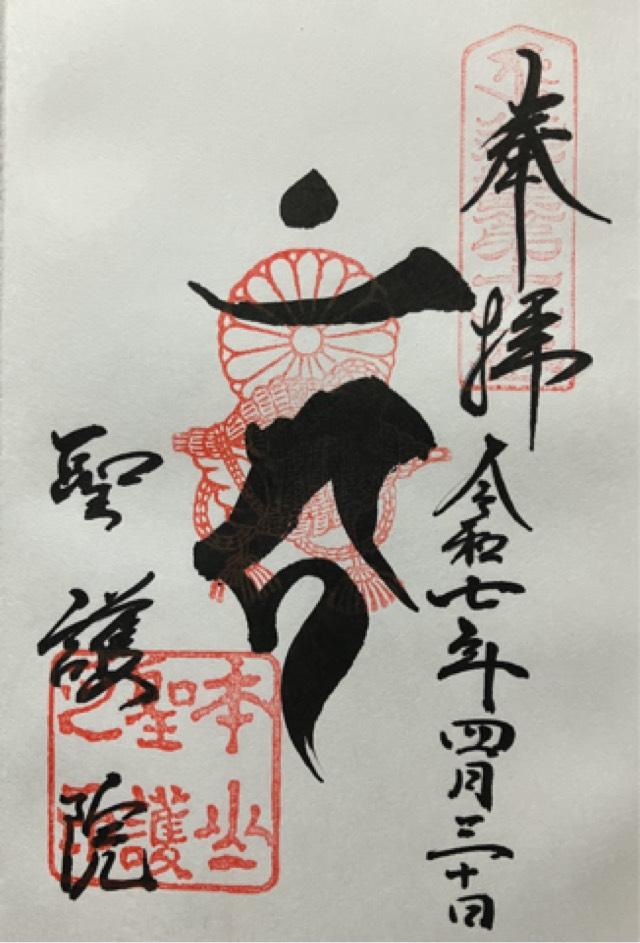 奉拝
令和七年四月三十日
本山
聖護
聖護院